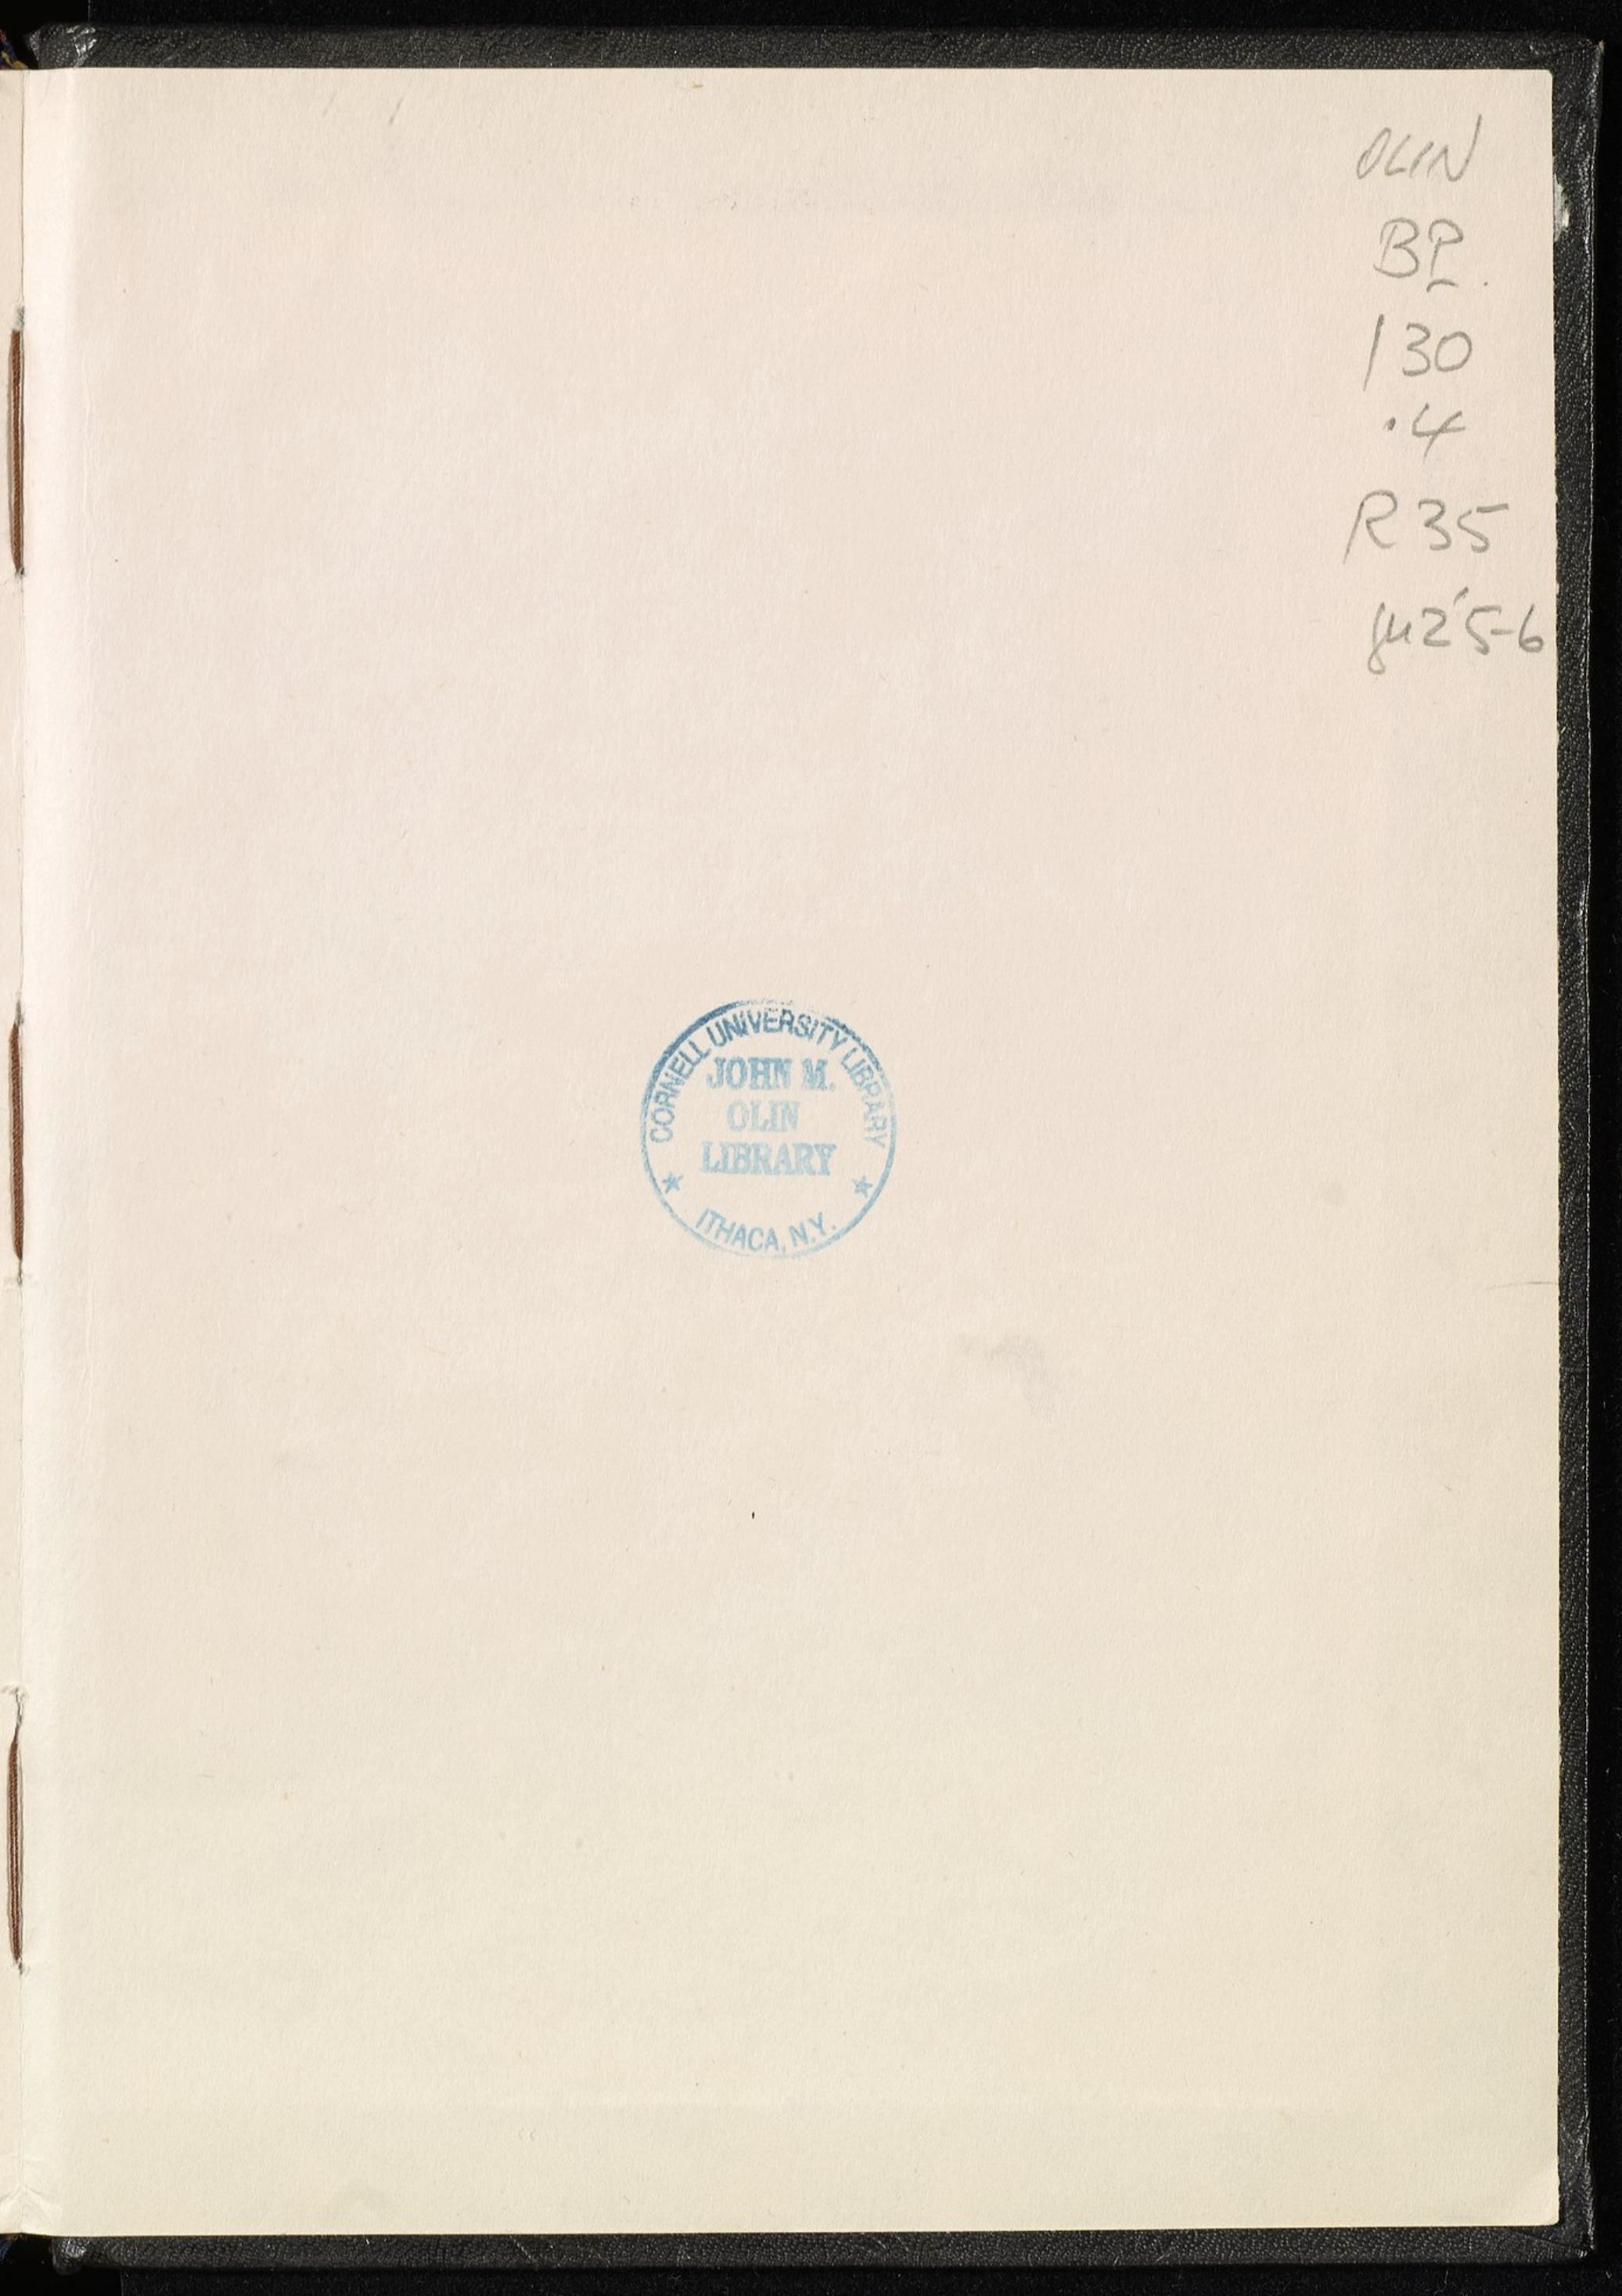 OLIN
BP
130
.4
R35
CORNELL UNIVERSITY LIBRARY
JOHN M.
OLIN
LIBRARY
ITHACA, N.Y.